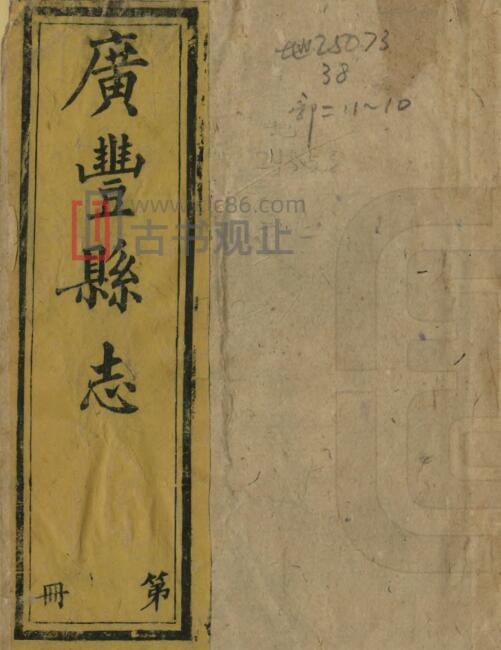 廣豐縣志
第 冊
地25073
38
部二11~10
古书观止